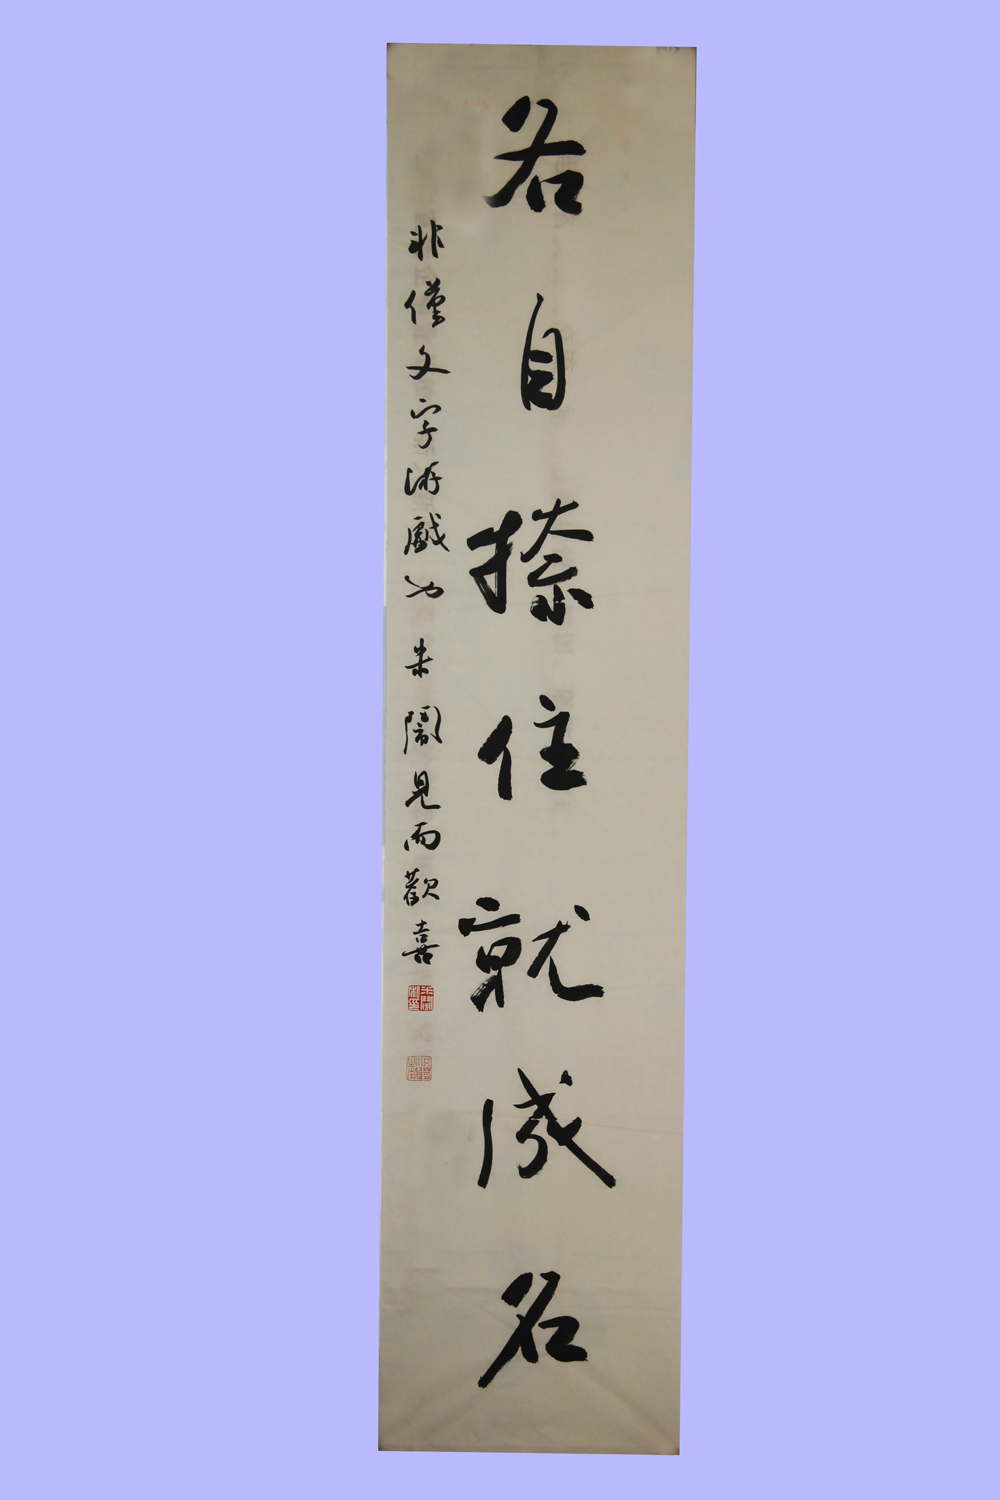 各自捺住就成名
非僅文字游戲也 米闇見而歡喜